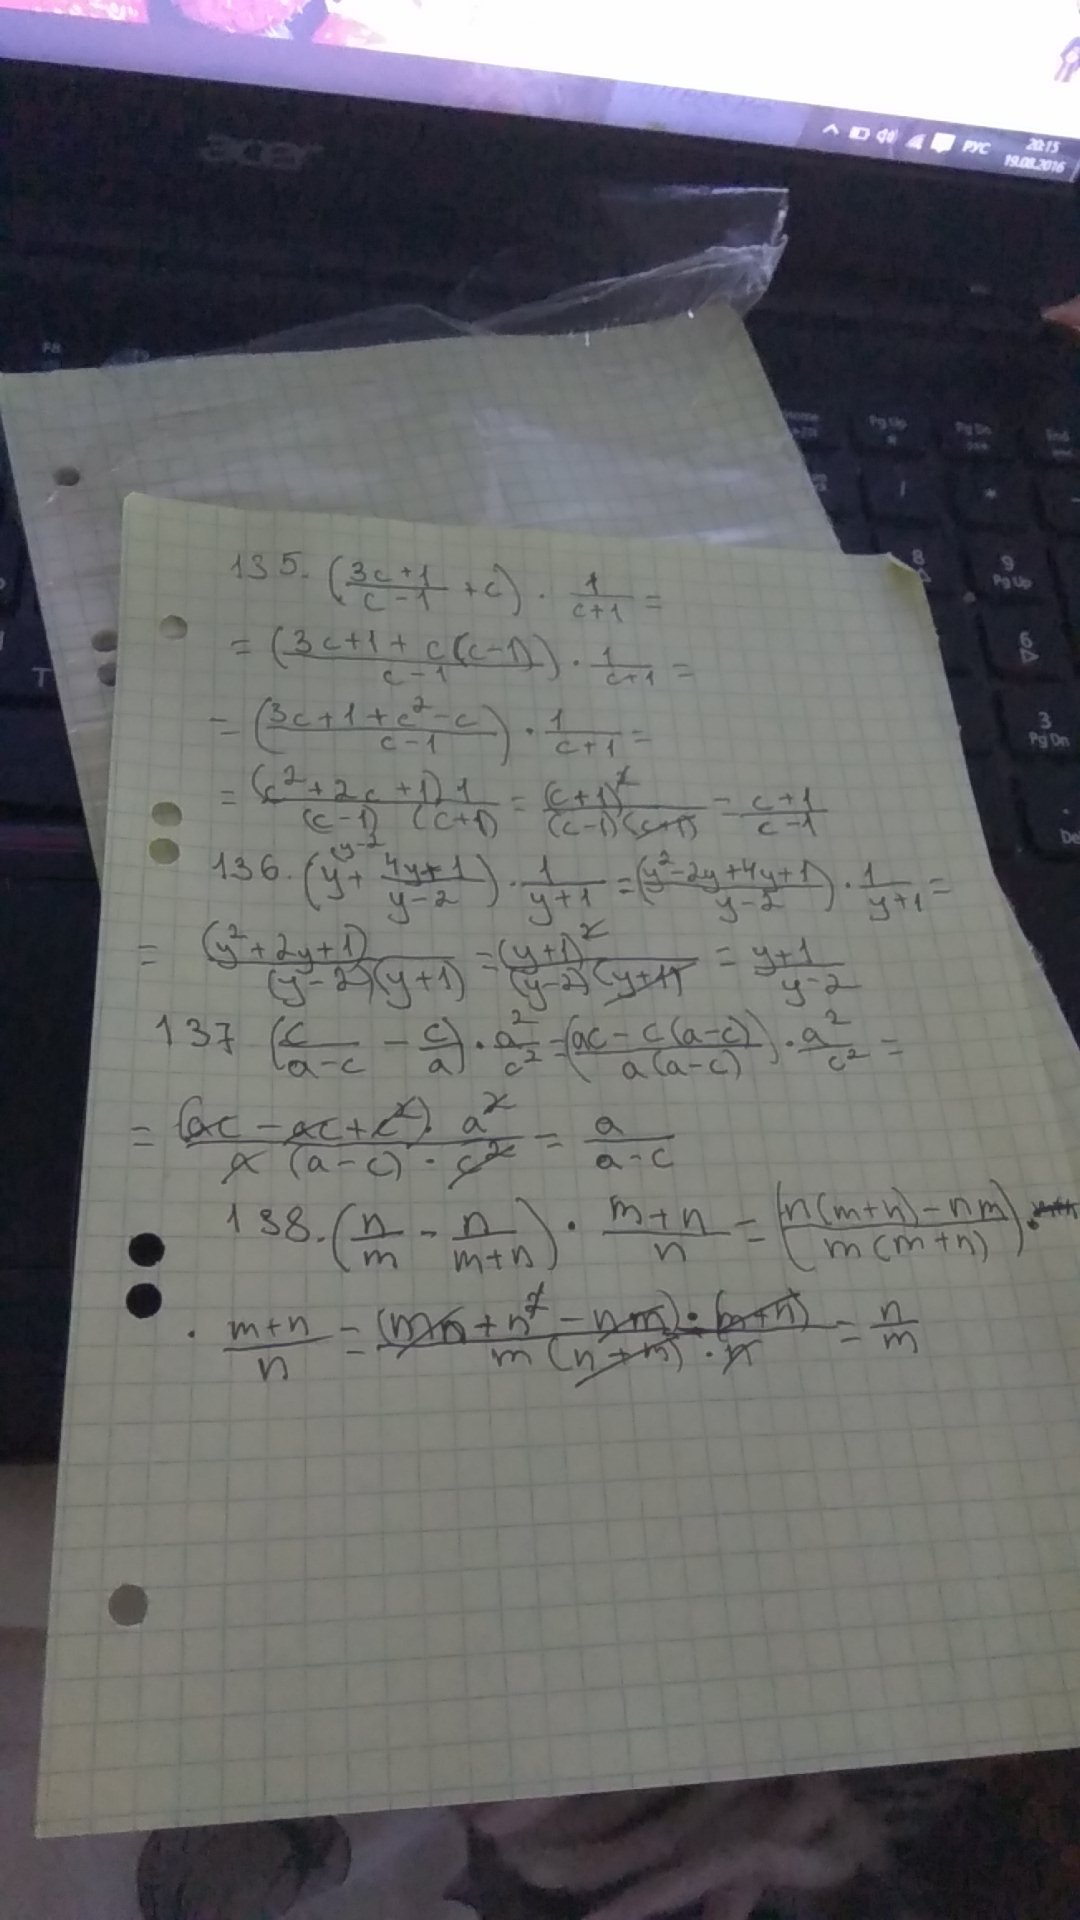 acer
РУС
20:15
19.08.2016
F8
Home
Pg Up
Pg Dn
End
8
9
Pg Up
6
3
Pg Dn
T
135. ((3c+1)/(c-1) + c) · 1/(c+1) =
= ((3c+1+c(c-1))/(c-1)) · 1/(c+1) =
= ((3c+1+c²-c)/(c-1)) · 1/(c+1) =
= (c²+2c+1)·1/((c-1)(c+1)) = (c+1)²/((c-1)(c+1)) = (c+1)/(c-1)
136. (y + (4y+1)/(y-2)) · 1/(y+1) = ((y²-2y+4y+1)/(y-2)) · 1/(y+1) =
= (y²+2y+1)/((y-2)(y+1)) = (y+1)²/((y-2)(y+1)) = (y+1)/(y-2)
137 (c/(a-c) - c/a) · a²/c² = ((ac-c(a-c))/(a(a-c))) · a²/c² =
= (ac-ac+c²)·a²/(a(a-c)·c²) = a/(a-c)
138. (n/m - n/(m+n)) · (m+n)/n = ((n(m+n)-nm)/(m(m+n))) ·
· (m+n)/n = (mn+n²-nm)·(m+n)/(m(n+m)·n) = n/m